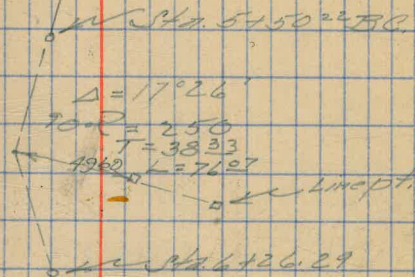 Sta. 5+50²² B.C.
Δ = 17°26'
R = 250
T = 38³³
4960 L = 76⁰⁷
Line pt
Sta. 6+26.29